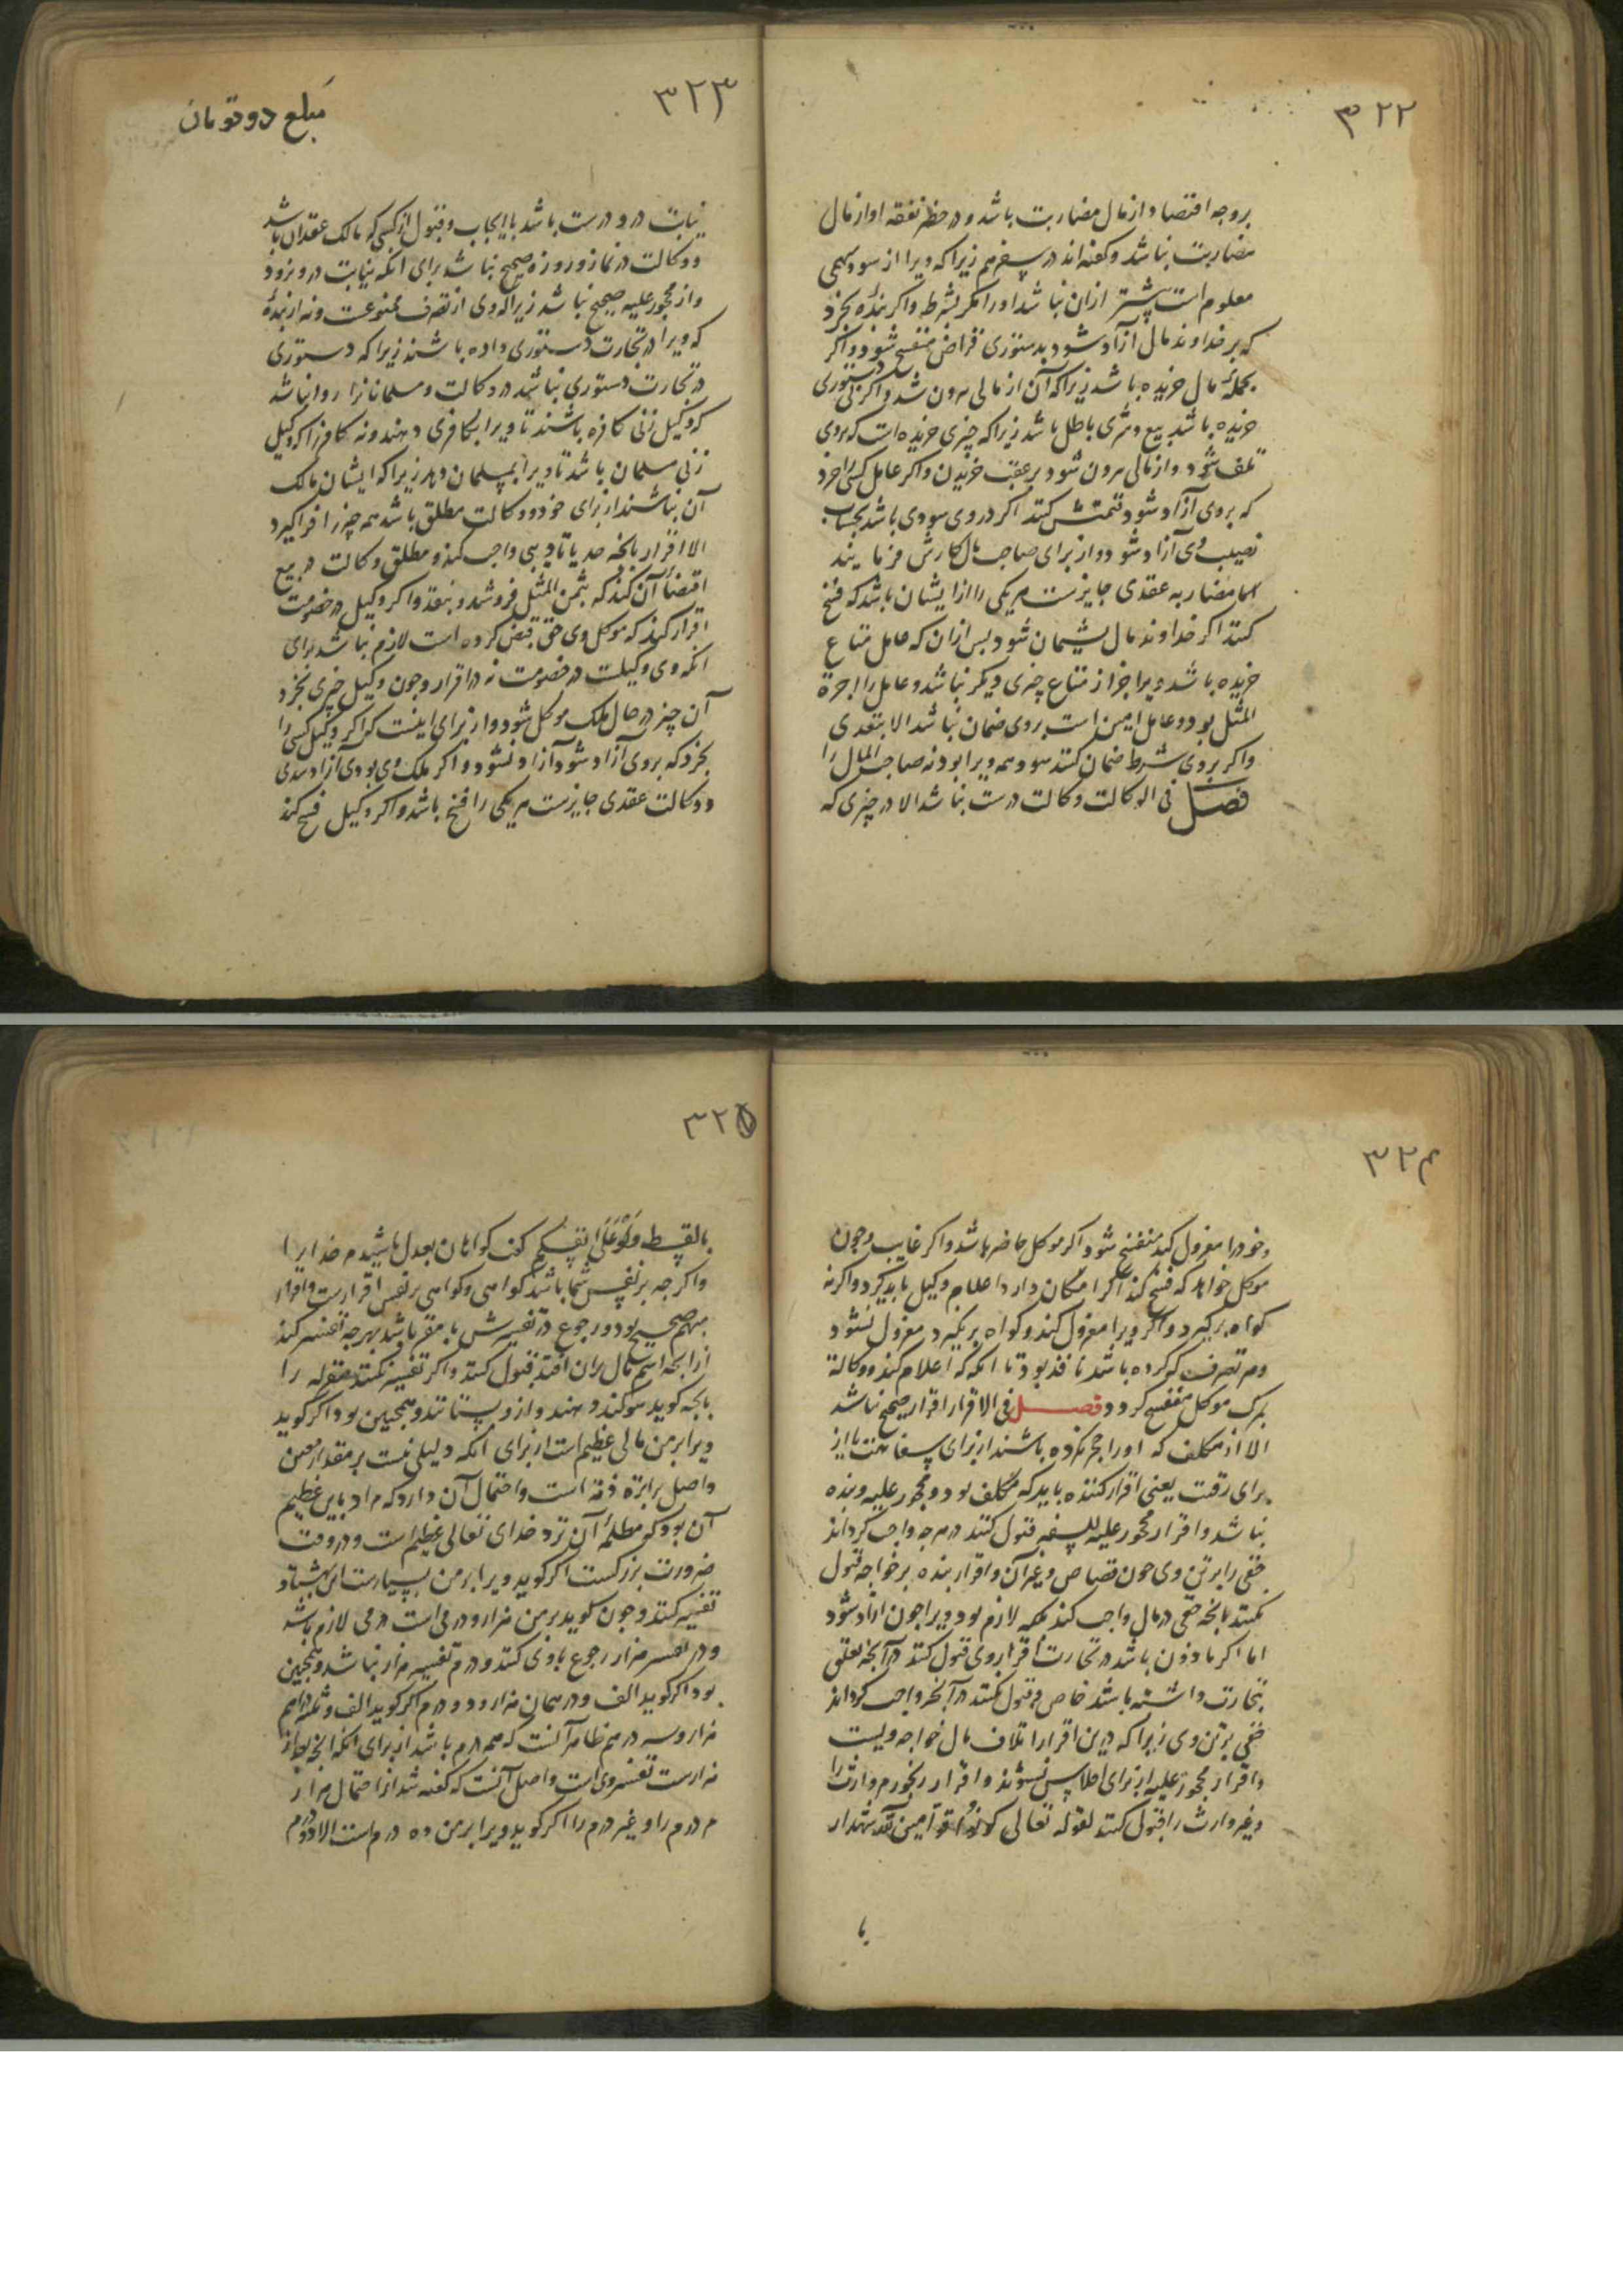 ٣٢٢
بروجه اقتصاد از مال مضاربت باشد و در حظر نفقه او از مال
مضاربت نباشد و کفته‌اند در سفر هم زیرا که ویرا از سود سهمی
معلوم است پیشتر ازان نباشد او را مکر بشرط و اکر بندۀ بخرد
که بر خداوند مال آزاد شود بدستوری قراض منفسخ شود و اکر
بجملۀ مال خریده باشد زیرا که آن از مالی برون شد و اکر نی دستوری
خریده باشد بیع و شری باطل باشد زیرا که چیزی خریده است که بروی
تلف شود و از مالی برون شود بر عقب خریدن و اکر عامل کسی را خرد
که بروی آزاد شود قیمتش کنند اکر در وی سودی باشد بحساب
نصیب وی آزاد شود و از برای صاحب مال کارش فرمایند
اما مضاربه عقدی جایزست هر یکی را از ایشان باشد که فسخ
کنند اکر خداوند مال پشیمان شود بس ازان که عامل متاع
خریده باشد ویرا جز از متاع چیزی دیکر نباشد و عامل را اجرة
المثل بود و عامل امین است بروی ضمان نباشد الا بتعدی
و اکر بروی شرط ضمان کنند سود همه ویرا بود نه صاحب المال را
فصل فی الوکالت وکالت درست نباشد الا در چیزی که
٣٢٣
مبلغ دو تومان
نیابت در و درست باشد با ایجاب و قبول از کسی که مالک عقد آن باشد
و وکالت در نماز و روزه صحیح نباشد برای انکه نیابت در و نرود
و از محجور علیه صحیح نباشد زیرا که وی از تصرف ممنوعست و نه از بندۀ
که ویرا در تجارت دستوری داده باشند زیرا که دستوری
در تجارت دستوری نباشد در وکالت و مسلمانانرا روا نباشد
که وکیل زنی کافره باشند تا ویرا بکافری دهند و نه کافر را که وکیل
زنی مسلمان باشد تا ویرا بمسلمان دهد زیرا که ایشان مالک
آن نباشند از برای خود و وکالت مطلق باشد همه چیز را فراکیرد
الا اقرار بانچه حد یا تادیبی واجب کند و مطلق وکالت در بیع
اقتضاء آن کند که بثمن المثل فروشد و بنقد و اکر وکیل در خصومت
اقرار کند که موکل وی حق قبض کرده است لازم نباشد برای
انکه وی وکیلست در خصومت نه در اقرار و جون وکیل چیزی بخرد
آن چیز در حال ملک موکل شود و از برای اینست که اکر وکیل کسی را
بخرد که بروی آزاد شود آزاد نشود و اکر ملک وی بودی آزاد شدی
و وکالت عقدی جایزست هر یکی را فسخ باشد و اکر وکیل فسخ کند
٣٢۴
و خود را معزول کند منفسخ شود اکر موکل حاضر باشد و اکر غایب و جون
موکل خواهد که فسخ کند اکر امکان دارد اعلام وکیل باید کرد و اکر نه
کواه برکیرد و اکر ویرا معزول کند و کواه برنکیرد معزول نشود
و هر تصرف که کرده باشد نافذ بود تا انکه که اعلام کند و وکالة
بمرک موکل منفسخ کردد فصل فی الاقرار اقرار صحیح نباشد
الا از مکلف که او را حجر نکرده باشند از برای سفاهت یا از
برای رقیت یعنی اقرار کننده باید که مکلف بود و محجور علیه و بنده
نباشد و اقرار محجور علیه للسفه قبول کنند در هرچه واجب کرداند
حقی را بر تن وی جون قصاص و غیر آن و اقرار بنده بر خواجه قبول
نکنند بانچه حقی در مال واجب کند بلکه لازم بود ویرا جون ازاد شود
اما اکر ماذون باشد در تجارت اقرار وی قبول کنند در آنچه تعلق
بتجارت داشته باشد خاص و قبول نکنند در آنچه واجب کرداند
حقی بر تن وی زیرا که درین اقرار اتلاف مال خواجه ویست
و اقرار محجور علیه از برای افلاس بشنوند و اقرار رنجور هم وارث را
و غیر وارث را قبول کنند لقوله تعالی کونوا قوامین لله شهداء
با
٣٢۵
بالقسط ولو علی انفسکم کفت کواهان بعدل باشید مر خدایرا
و اکر جه بر نفس شما باشد کواهی و کواهی بر نفس اقرارست و اقرار
مبهم صحیح بود و رجوع در تفسیرش با مقر باشد بهرجه تفسیر کند
از آنچه اسم مال بران افتد قبول کنند و اکر تفسیر نکند مقرله را
بانچه کوید سوکند دهند و از و بستانند و همچنین بود اکر کوید
ویرا بر من مالی عظیم است از برای انکه دلیلی نیست بر مقدار معین
و اصل برائة ذمه است و احتمال آن دارد که مراد باین عظیم
آن بود که مظلمۀ آن نزد خدای تعالی عظیم است و در وقت
ضرورت بزرکست اکر کوید ویرا بر من بسیارست این بهشتاد
تفسیر کنند و جون بکوید بر من هزار و درمی است درمی لازم باشد
و در تفسیر هزار رجوع با وی کنند و درم تفسیر هزار نباشد و همچنین
بود اکر کوید الف و درهمان هزار و دو درم اکر کوید الف و ثلثه دراهم
هزار و سه درهم ظاهر آنست که همه درم باشد از برای انکه آنچه بعد از
هزارست تفسیر وی است و اصل آنست که کفته شد از احتمال هزار
مر درم را و غیر درم را اکر کوید ویرا بر من ده درم است الا دو درم